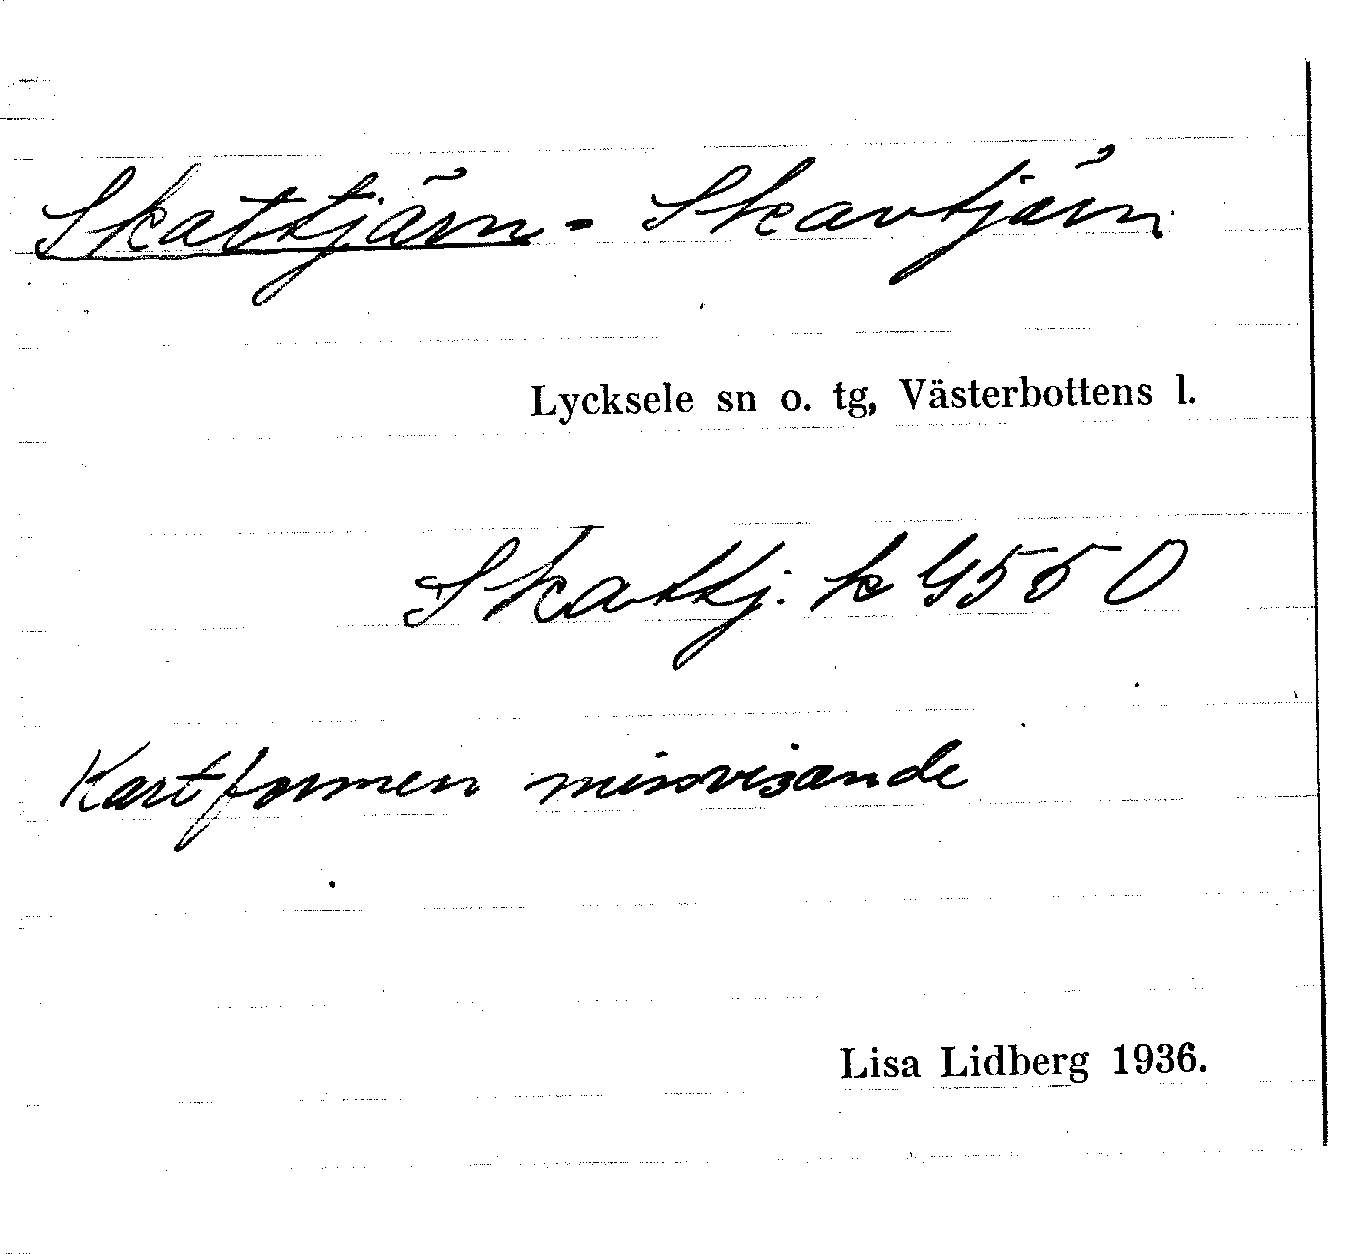 Skattjärn = Skavtjärn
Lycksele sn o. tg, Västerbottens l.
Skattj. k G55 O
Kartformen missvisande
Lisa Lidberg 1936.